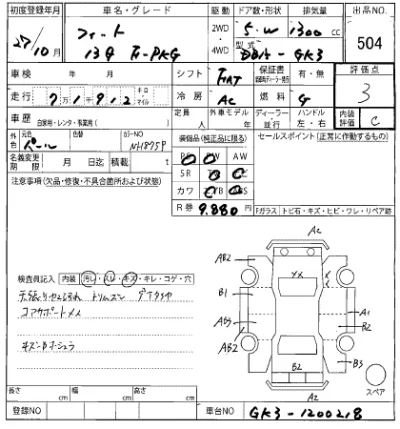 初度登録年月 車名・グレード 駆動 ドア数・形状 排気量 出品NO.
27/10月 フィット 2WD 5.W 1300cc 504
13G F-PKG 4WD 型式 DBA-GK3
車検 年 月 シフト FAT 保証書 有・無 評価点
走行 7万1912 キロ マイル 冷房 AC 燃料 G 3
車歴 自家用・レンタ・事業用( ) 定員 人 外車モデル 年 ディーラー 並行 ハンドル 左・右 内装評価 C
外色 元色 パール 色替 カラーNO NH875P 装備品(純正品に限る) セールスポイント(正常に作動するもの)
AW
名義変更期限 月 日迄 積載 t SR
カワ
注意事項(欠品・修復・不具合箇所および状態) R券 9.880円
Fガラス トビ石・キズ・ヒビ・ワレ・リペア跡
検査員記入 内装 汚レ・スレ・キズ・キレ・コゲ・穴
コアサポートメメ
A2
AB2
B1
AB3
AB2
A1
B2
B3
B2
A2
スペア
長さ cm 幅 cm 高さ cm
登録NO 車台NO GK3-1200218